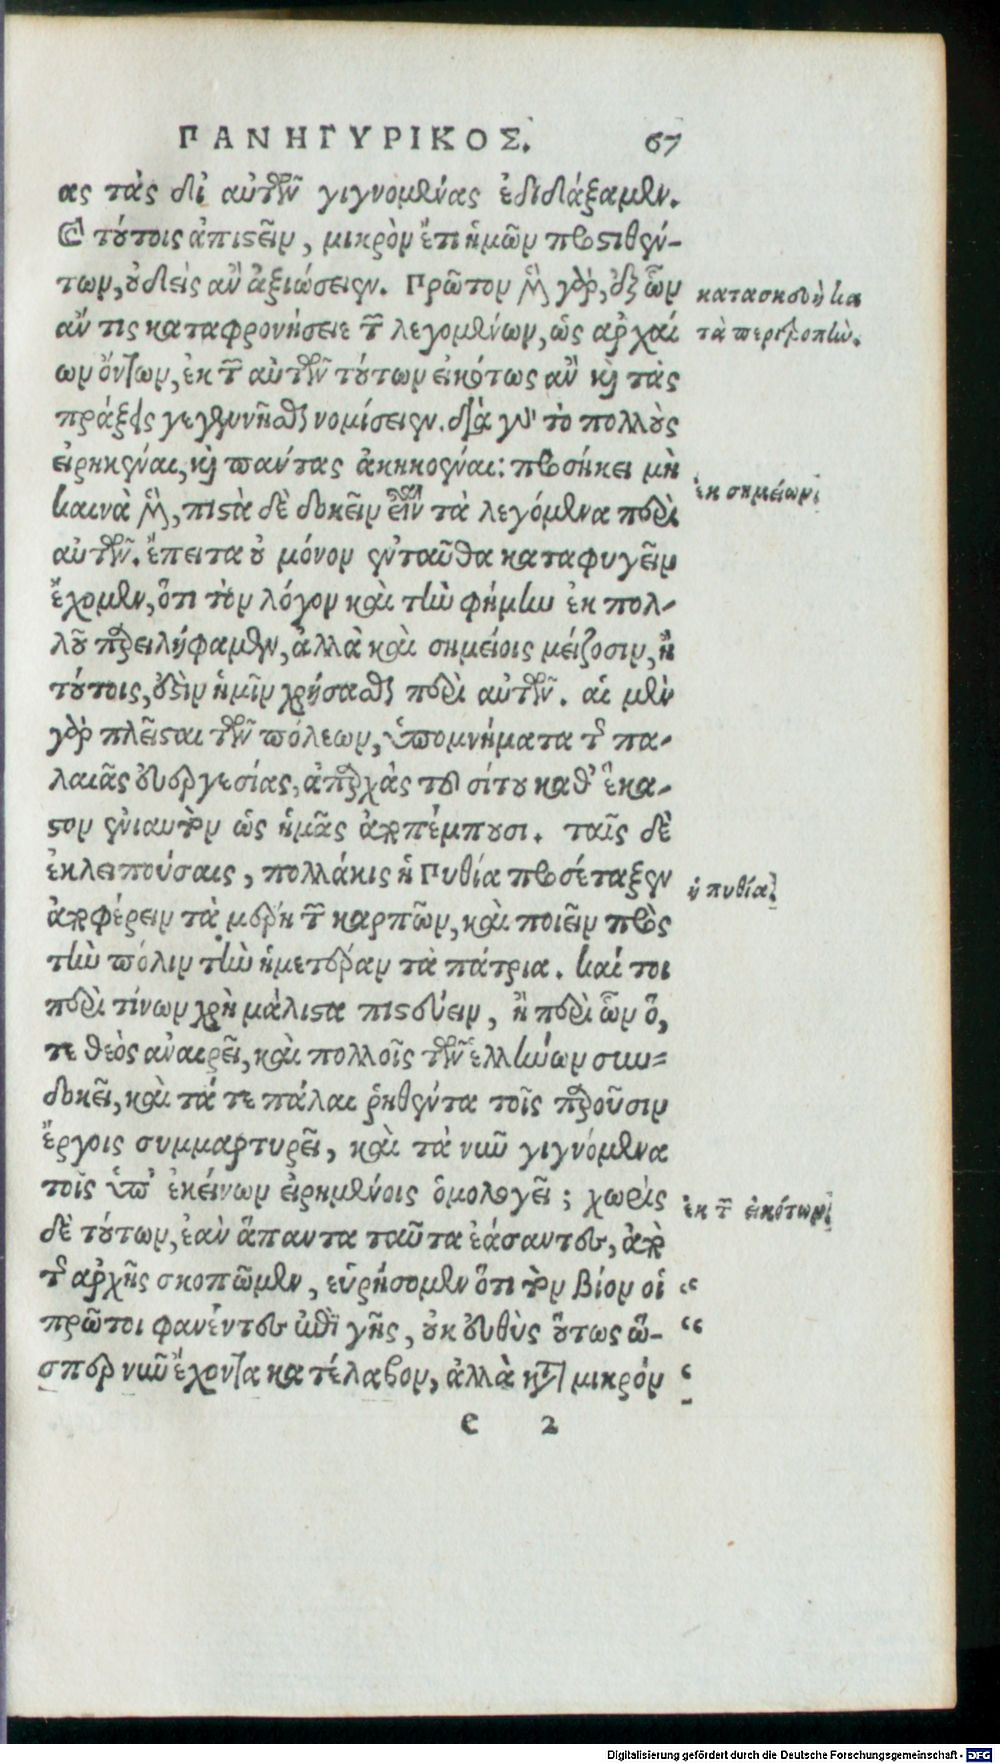 ΠΑΝΗΓΥΡΙΚΟΣ. 67
ας τὰς δι' αὐτῶν γιγνομένας ἐδιδάξαμεν.
Καὶ τούτοις ἀπιστεῖν, μικρῶν ἔτι ἡμῶν προστιθέν-
των, οὐδεὶς ἂν ἀξιώσειεν. Πρῶτον μὲν γὰρ, ἐξ ὧν
ἄν τις καταφρονήσειε τῶν λεγομένων, ὡς ἀρχαί
ων ὄντων, ἐκ τῶν αὐτῶν τούτων εἰκότως ἂν καὶ τὰς
πράξεις γεγενῆσθαι νομίσειεν. διὰ γὰρ τὸ πολλοὺς
εἰρηκέναι, καὶ πάντας ἀκηκοέναι: προσήκει μὴ
καινὰ μὲν, πιστὰ δὲ δοκεῖν εἶναι τὰ λεγόμενα περὶ
αὐτῶν. ἔπειτα οὐ μόνον ἐνταῦθα καταφυγεῖν
ἔχομεν, ὅτι τὸν λόγον καὶ τὴν φήμην ἐκ πολ-
λοῦ παρειλήφαμεν, ἀλλὰ καὶ σημείοις μείζοσιν, ἢ
τούτοις, ἔστιν ἡμῖν χρήσασθαι περὶ αὐτῶν. αἱ μὲν
γὰρ πλεῖσται τῶν πόλεων, ὑπομνήματα τῆς πα-
λαιᾶς εὐεργεσίας, ἀπαρχὰς τοῦ σίτου καθ' ἕκα-
στον ἐνιαυτὸν ὡς ἡμᾶς ἀποπέμπουσι. ταῖς δὲ
ἐκλειπούσαις, πολλάκις ἡ Πυθία προσέταξεν
ἀποφέρειν τὰ μέρη τῶν καρπῶν, καὶ ποιεῖν πρὸς
τὴν πόλιν τὴν ἡμετέραν τὰ πάτρια. καί τοι
περὶ τίνων χρὴ μάλιστα πιστεύειν, ἢ περὶ ὧν ὅ,
τε θεὸς ἀναιρεῖ, καὶ πολλοῖς τῶν ἑλλήνων συν-
δοκεῖ, καὶ τά τε πάλαι ῥηθέντα τοῖς παροῦσιν
ἔργοις συμμαρτυρεῖ, καὶ τὰ νῦν γιγνόμενα
τοῖς ὑπ' ἐκείνων εἰρημένοις ὁμολογεῖ; χωρὶς
δὲ τούτων, ἐὰν ἅπαντα ταῦτα ἐάσαντες, ἀπὸ
τῆς ἀρχῆς σκοπῶμεν, εὑρήσομεν ὅτι τὸν βίον οἱ “
πρῶτοι φανέντες ἐπὶ γῆς, οὐκ εὐθὺς οὕτως ὥ- “
σπερ νῦν ἔχοντα κατέλαβον, ἀλλὰ κατὰ μικρὸν “
e 2
κατασκευὴ κα
τὰ περικοπὴν.
ἐκ σημείων
ἡ πυθία
ἐκ τῶν εἰκότων
Digitalisierung gefördert durch die Deutsche Forschungsgemeinschaft - DFG